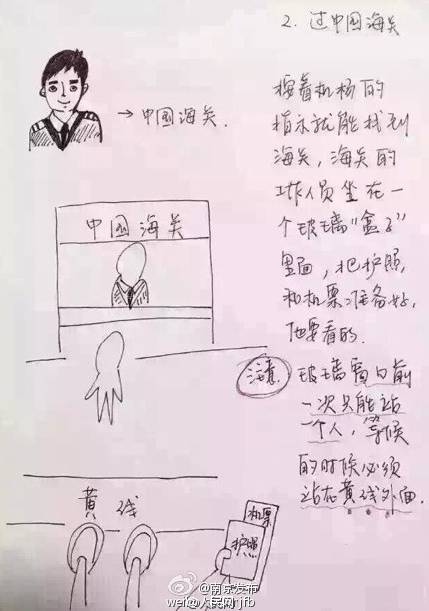 2. 过中国海关
→中国海关.
接着机场的
指示就能找到
海关，海关的
工作人员坐在一
个玻璃“盒子”
里面，把护照
和机票准备好，
他要看的.
中国海关
注意
玻璃窗口前
一次只能站
一个人，等候
的时候必须
站在黄线外面.
黄线
机票
护照
@南京发布
weibo@人民网 jfb